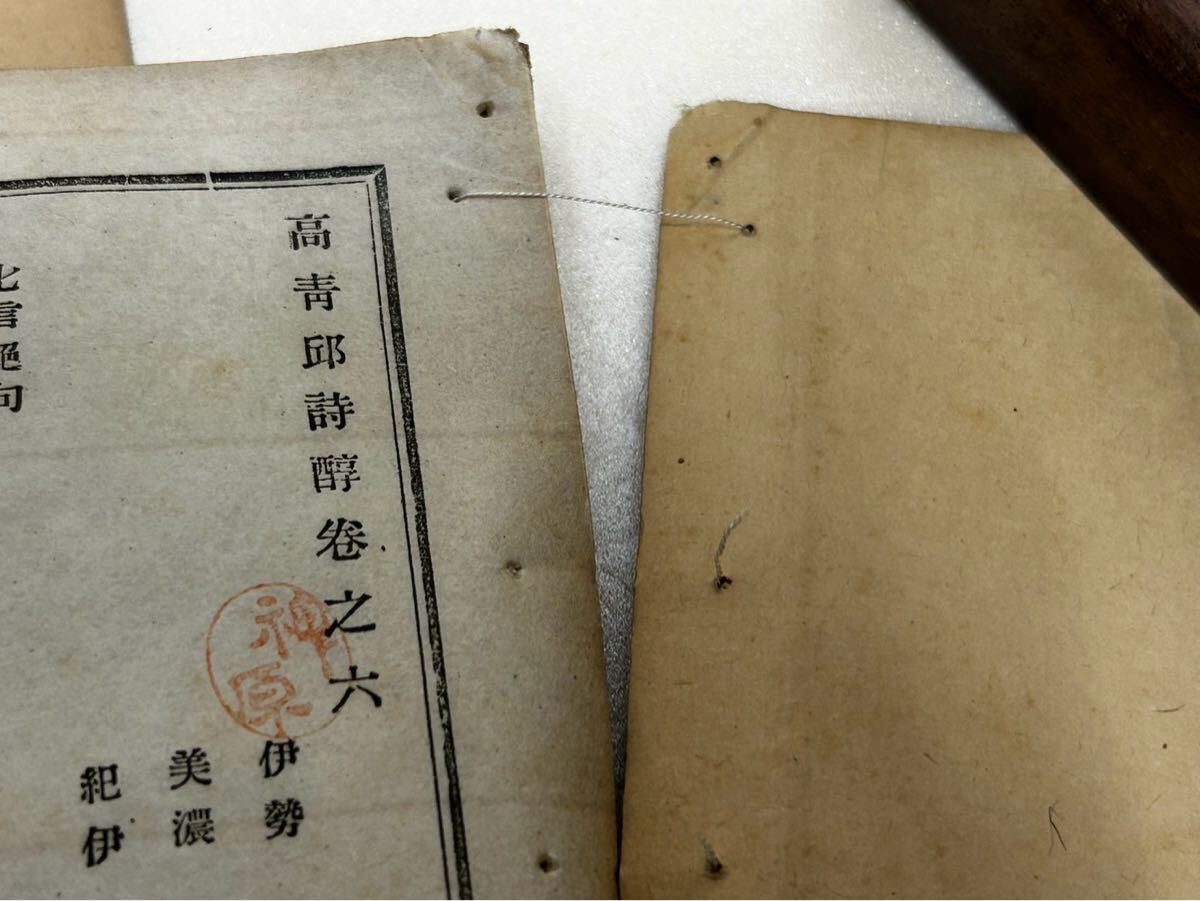 高青邱詩醇卷之六
神原
伊勢
美濃
紀伊
言絕句